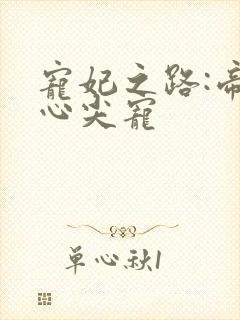 寵妃之路:帝
心尖寵
単心秋1